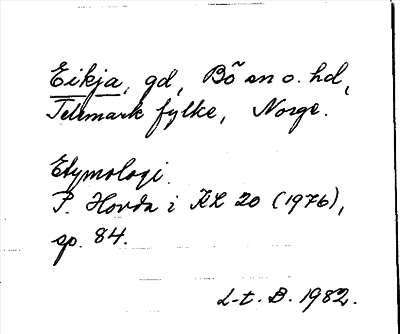 Eikja, gd, Bö sn o. hd,
Telemark fylke, Norge.
Etymologi.
P. Hovda i KL 20 (1976),
sp. 84.
L-t. B. 1982.